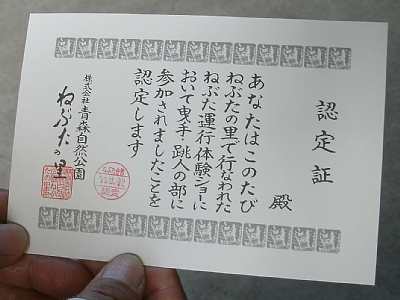 認定証
殿
あなたはこのたび
ねぶたの里で行なわれた
ねぶた運行体験ショーに
おいて曳手 跳人の部に
参加されましたことを
認定します
株式会社青森自然公園
ねぶたの里